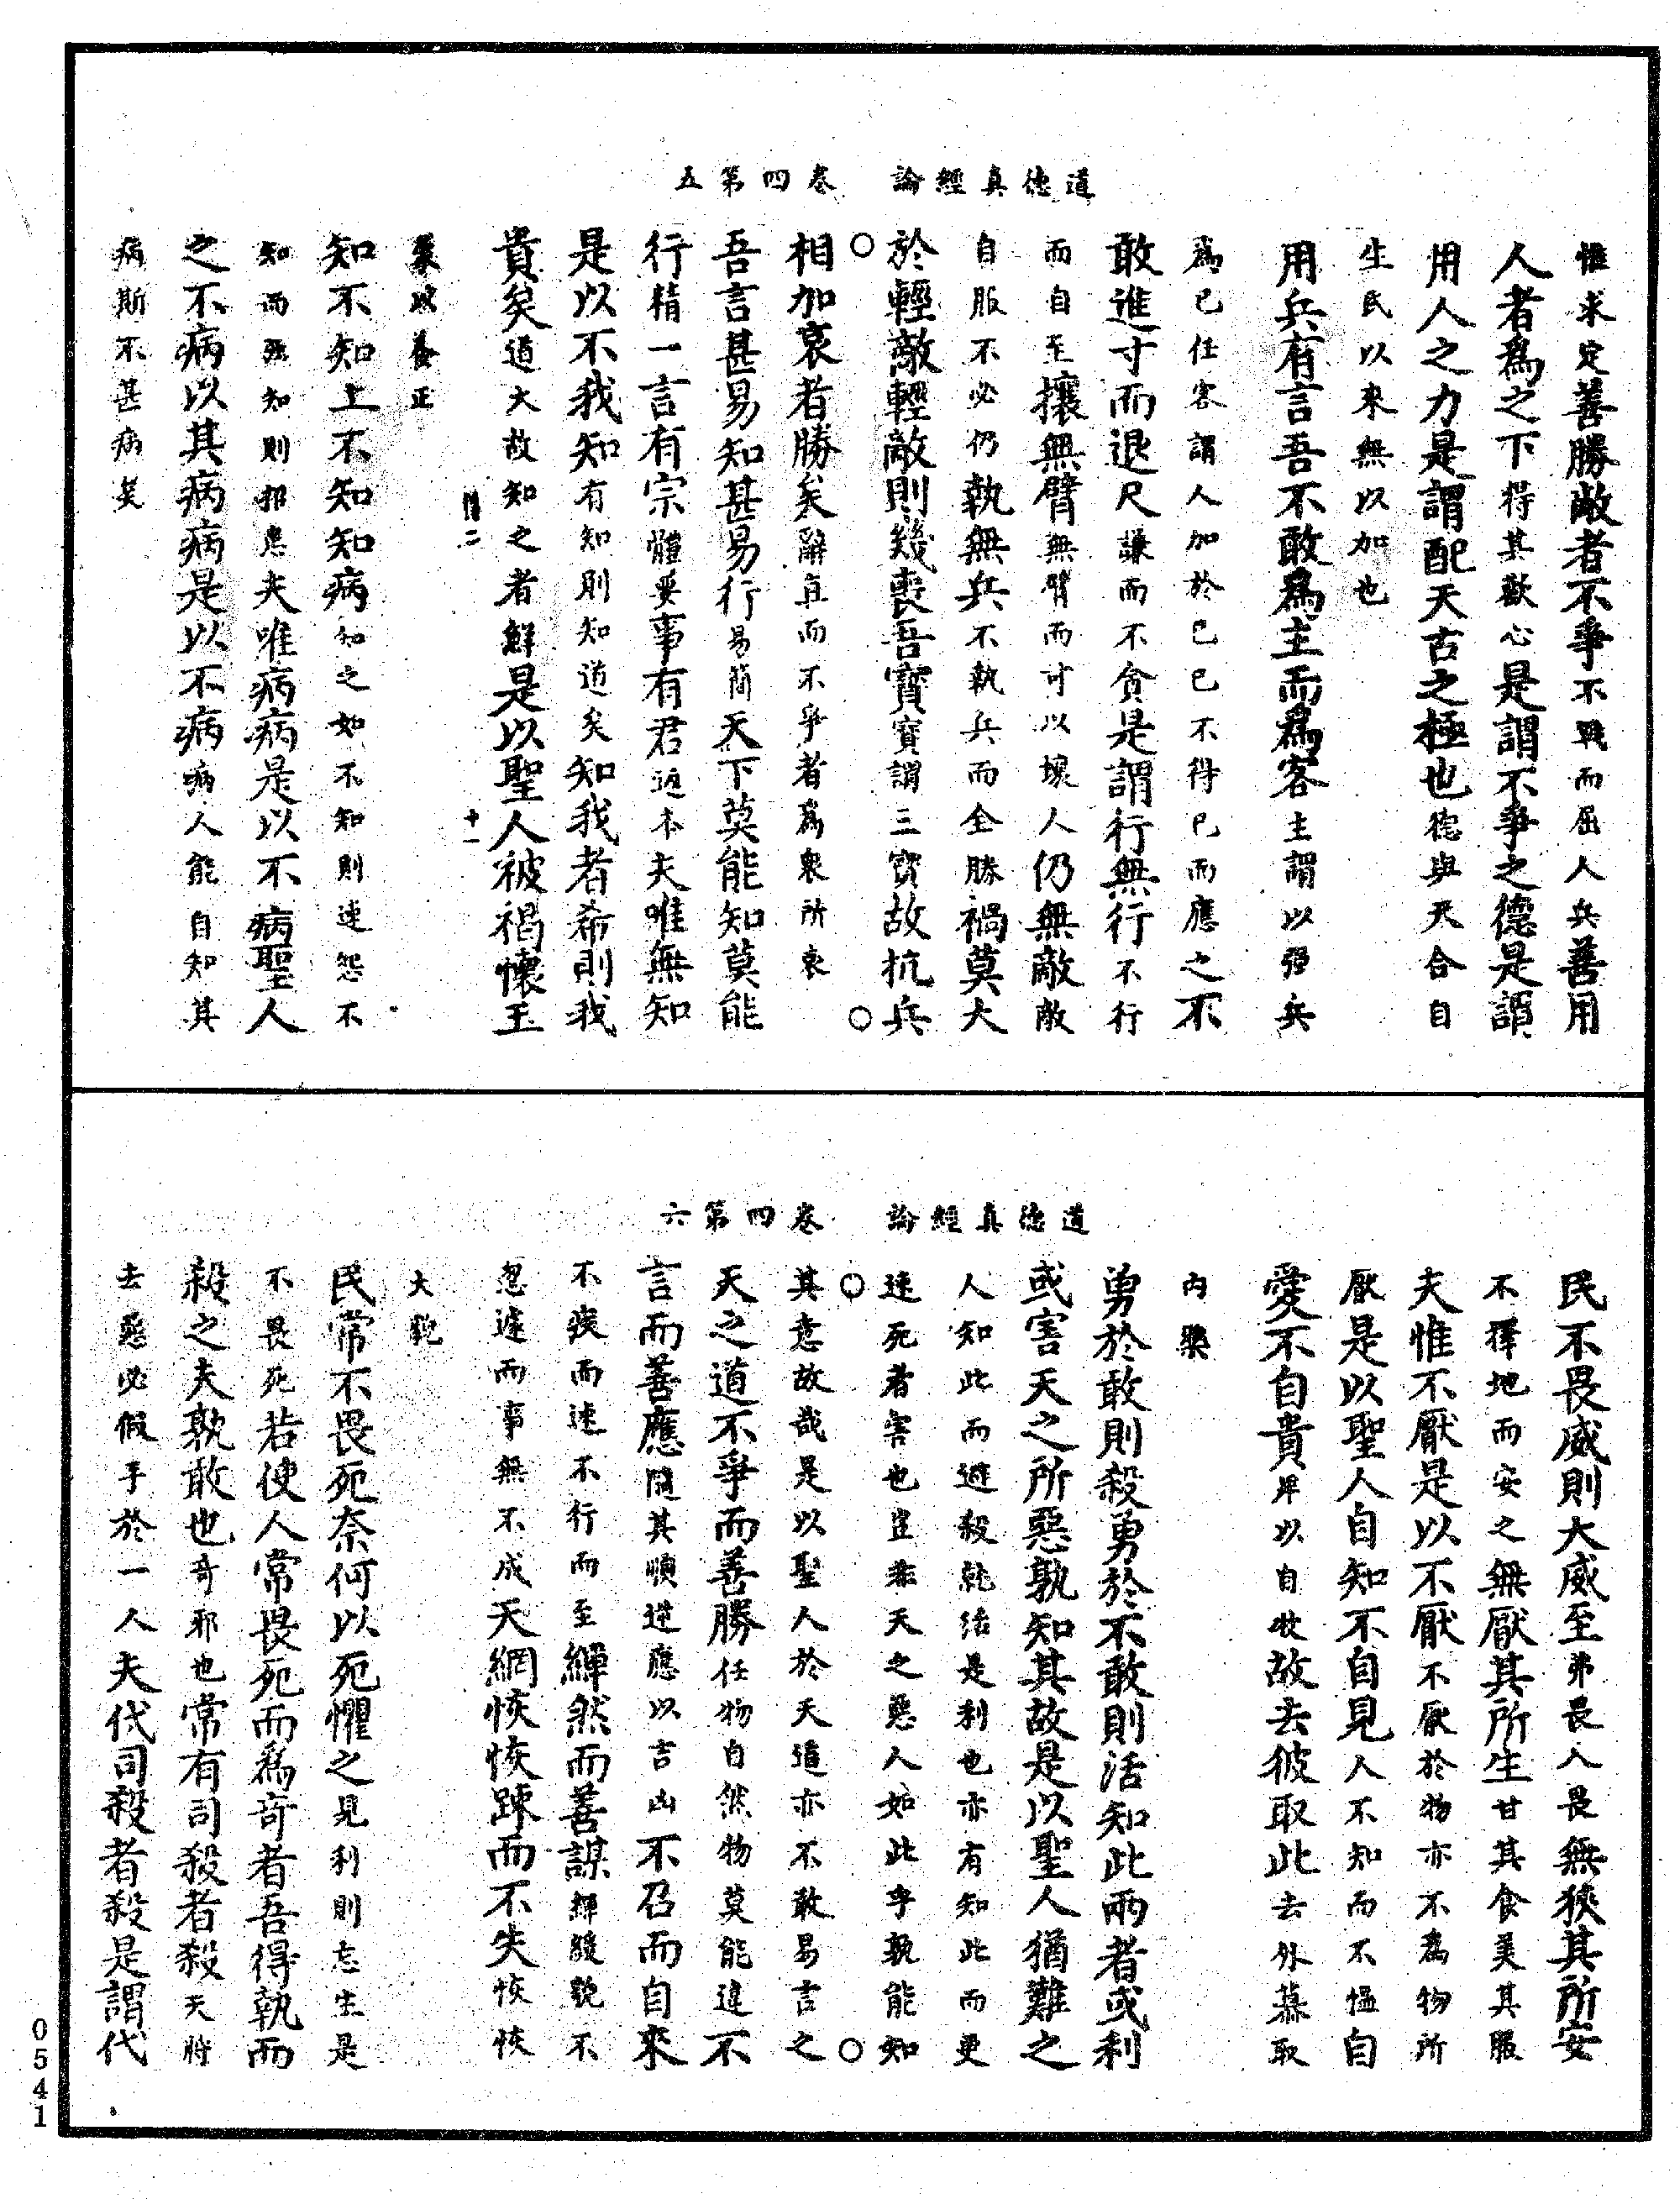 道德真經論　卷四第五
惟求定善勝敵者不爭不戰而屈人兵善用
人者為之下得其歡心是謂不爭之德是謂
用人之力是謂配天古之極也德與天合自
生民以來無以加也
用兵有言吾不敢為主而為客主謂以強兵
為己任客謂人加於己己不得已而應之不
敢進寸而退尺謙而不貪是謂行無行不行
而自至攘無臂無臂而可以壞人仍無敵敵
自服不必仍執無兵不執兵而全勝禍莫大
於輕敵輕敵則幾喪吾寶寶謂三寶故抗兵
相加哀者勝矣辭直而不爭者為衆所哀
吾言甚易知甚易行易簡天下莫能知莫能
行精一言有宗體要事有君返本夫唯無知
是以不我知有知則知道矣知我者希則我
貴矣道大故知之者鮮是以聖人被褐懷玉
蒙以養正
二　十一
知不知上不知知病知之如不知則速怨不
知而強知則招患夫唯病病是以不病聖人
之不病以其病病是以不病病人能自知其
病斯不甚病矣
道德真經論　卷四第六
民不畏威則大威至弗畏人畏無狹其所安
不擇地而安之無厭其所生甘其食美其服
夫惟不厭是以不厭不厭於物亦不為物所
厭是以聖人自知不自見人不知而不慍自
愛不自貴卑以自牧故去彼取此去外慕取
內樂
勇於敢則殺勇於不敢則活知此兩者或利
或害天之所惡孰知其故是以聖人猶難之
人知此而避殺就活是利也亦有知此而更
速死者害也豈非天之惡人如此乎孰能知
其意故哉是以聖人於天道亦不敢易言之
天之道不爭而善勝任物自然物莫能違不
言而善應隨其順逆應以吉凶不召而自來
不疾而速不行而至繟然而善謀繟緩貌不
怱遽而事無不成天網恢恢踈而不失恢恢
大貌
民常不畏死奈何以死懼之見利則忘生是
不畏死若使人常畏死而為奇者吾得執而
殺之夫孰敢也奇邪也常有司殺者殺天將
去惡必假手於一人夫代司殺者殺是謂代
0541